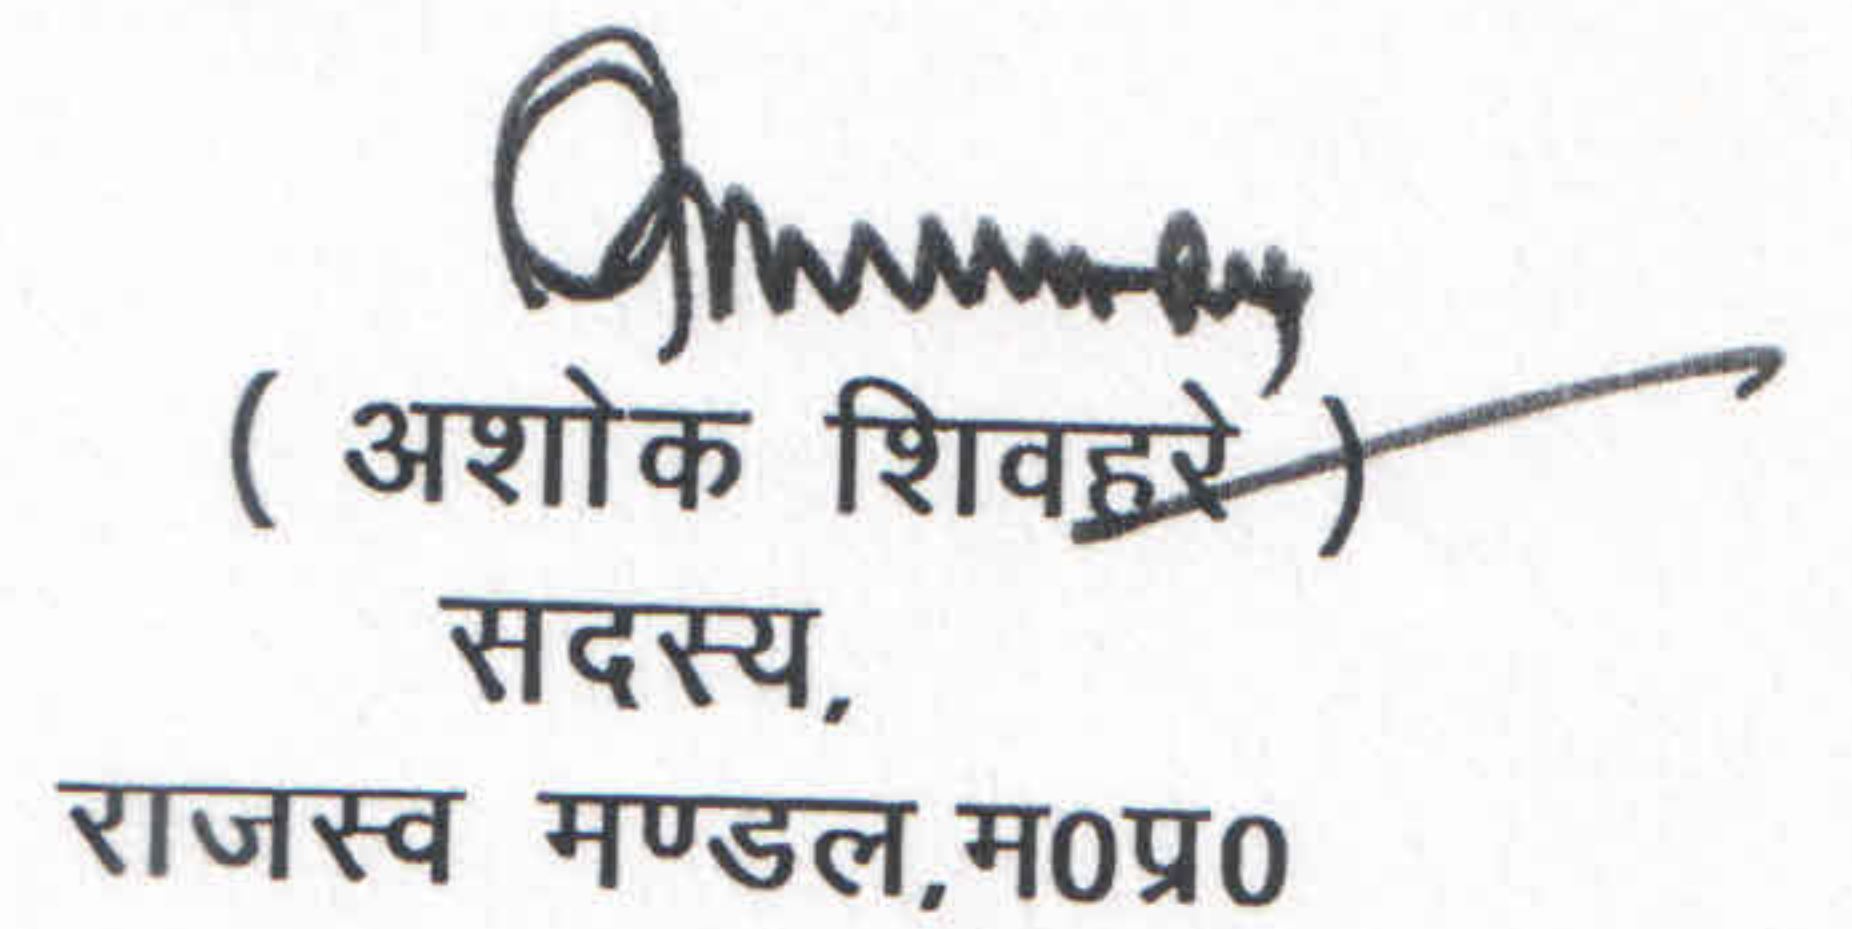 ( अशोक शिवहरे )
सदस्य,
राजस्व मण्डल,म0प्र0